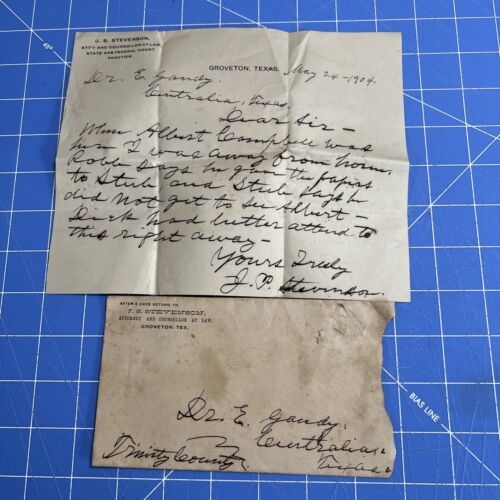 J. S. STEVENSON,
ATT'Y AND COUNSELLOR AT LAW,
STATE AND FEDERAL COURT
PRACTICE.
GROVETON, TEXAS, May 24-1904.
Dr. E. Gandy.
Centralia, Texas.
Dear Sir-
When Albert Campbell was
here I was away from home.
Robb says he gave the papers
to Stub and Stub says he
did not get to see Albert-
Dick had better attend to
this right away-
Yours Truly
J. S. Stevenson.
AFTER 5 DAYS RETURN TO
J. S. STEVENSON,
ATTORNEY AND COUNSELLOR AT LAW,
GROVETON, TEX.
Dr. E. Gandy.
Centralia.
Trinity County. Texas.
45°
BIAS LINE